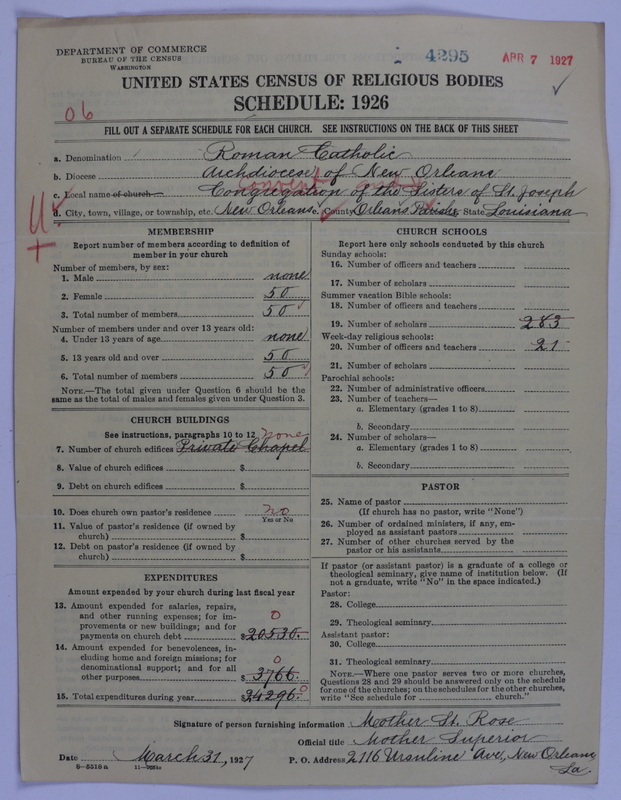 DEPARTMENT OF COMMERCE
BUREAU OF THE CENSUS
WASHINGTON
4295
APR 7 1927
UNITED STATES CENSUS OF RELIGIOUS BODIES
SCHEDULE: 1926
06
FILL OUT A SEPARATE SCHEDULE FOR EACH CHURCH. SEE INSTRUCTIONS ON THE BACK OF THIS SHEET
a. Denomination Roman Catholic
b. Diocese Archdiocese of New Orleans
c. Local name of church Congregation of the Sisters of St. Joseph
d. City, town, village, or township, etc. New Orleans e. County Orleans Parish f. State Louisiana
MEMBERSHIP
Report number of members according to definition of
member in your church
Number of members, by sex:
1. Male none
2. Female 50
3. Total number of members 50
Number of members under and over 13 years old:
4. Under 13 years of age none
5. 13 years old and over 50
6. Total number of members 50
NOTE.—The total given under Question 6 should be the
same as the total of males and females given under Question 3.
CHURCH BUILDINGS
See instructions, paragraphs 10 to 12 none
7. Number of church edifices Private Chapel
8. Value of church edifices $
9. Debt on church edifices $
10. Does church own pastor's residence no
Yes or No
11. Value of pastor's residence (if owned by
church) $
12. Debt on pastor's residence (if owned by
church) $
EXPENDITURES
Amount expended by your church during last fiscal year
13. Amount expended for salaries, repairs,
and other running expenses; for im-
provements or new buildings; and for
payments on church debt $20530. 0
14. Amount expended for benevolences, in-
cluding home and foreign missions; for
denominational support; and for all
other purposes $3766. 0
15. Total expenditures during year 24296. 0
CHURCH SCHOOLS
Report here only schools conducted by this church
Sunday schools:
16. Number of officers and teachers
17. Number of scholars
Summer vacation Bible schools:
18. Number of officers and teachers
19. Number of scholars 283
Week-day religious schools:
20. Number of officers and teachers 21
21. Number of scholars
Parochial schools:
22. Number of administrative officers
23. Number of teachers—
a. Elementary (grades 1 to 8)
b. Secondary
24. Number of scholars—
a. Elementary (grades 1 to 8)
b. Secondary
PASTOR
25. Name of pastor
(If church has no pastor, write "None")
26. Number of ordained ministers, if any, em-
ployed as assistant pastors
27. Number of other churches served by the
pastor or his assistants
If pastor (or assistant pastor) is a graduate of a college or
theological seminary, give name of institution below. (If
not a graduate, write "No" in the space indicated.)
Pastor:
28. College
29. Theological seminary
Assistant pastor:
30. College
31. Theological seminary
NOTE.—Where one pastor serves two or more churches,
Questions 28 and 29 should be answered only on the schedule
for one of the churches; on the schedules for the other churches,
write "See schedule for church."
Signature of person furnishing information Mother St. Rose
Official title Mother Superior
Date March 31, 1927 P. O. Address 2116 Ursuline Ave, New Orleans
La.
8—5518a